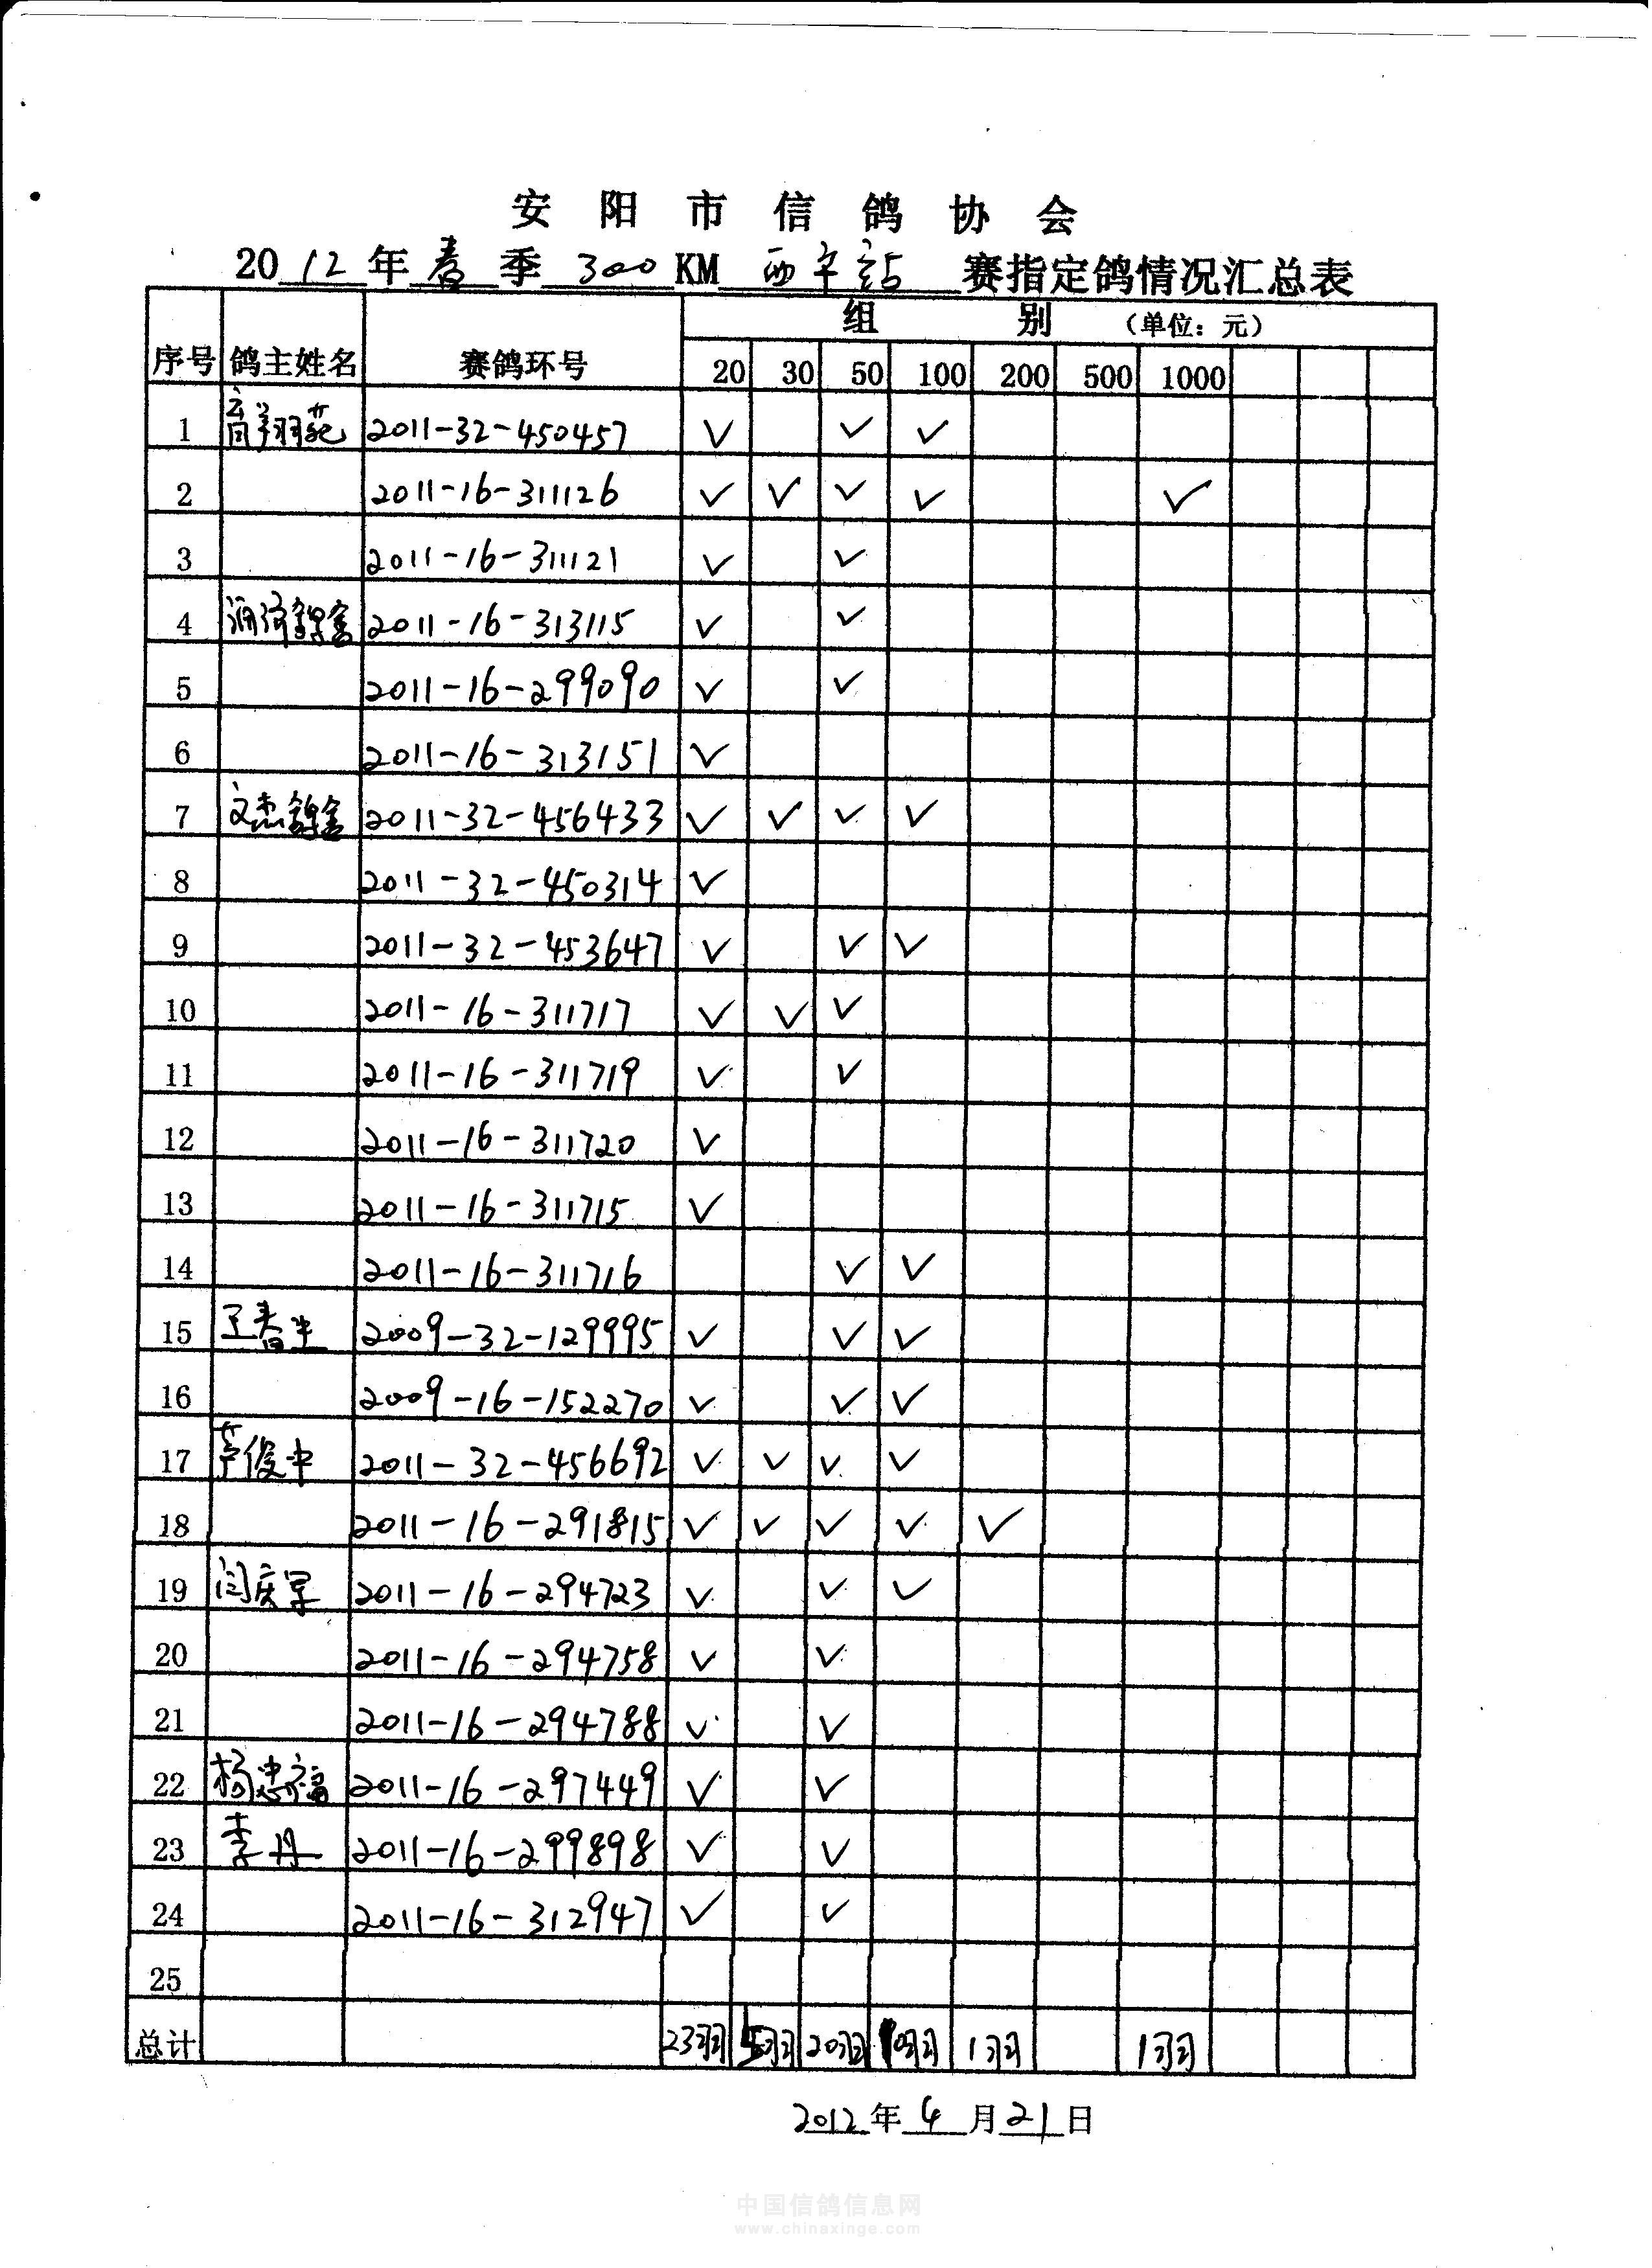 安阳市信鸽协会
2012年春季300KM西平站赛指定鸽情况汇总表
组别（单位：元）
序号 鸽主姓名 赛鸽环号 20 30 50 100 200 500 1000
1 育翔苑 2011-32-450457 ✓ ✓ ✓
2 2011-16-311126 ✓ ✓ ✓ ✓ ✓
3 2011-16-311121 ✓ ✓
4 鸽舍 2011-16-313115 ✓ ✓
5 2011-16-299090 ✓ ✓
6 2011-16-313151 ✓
7 文杰鸽舍 2011-32-456433 ✓ ✓ ✓ ✓
8 2011-32-450314 ✓
9 2011-32-453647 ✓ ✓ ✓
10 2011-16-311717 ✓ ✓ ✓
11 2011-16-311719 ✓ ✓
12 2011-16-311720 ✓
13 2011-16-311715 ✓
14 2011-16-311716 ✓ ✓
15 王春生 2009-32-129995 ✓ ✓ ✓
16 2009-16-152270 ✓ ✓ ✓
17 芦俊中 2011-32-456692 ✓ ✓ ✓ ✓
18 2011-16-291815 ✓ ✓ ✓ ✓ ✓
19 闫庆军 2011-16-294723 ✓ ✓ ✓
20 2011-16-294758 ✓ ✓
21 2011-16-294788 ✓ ✓
22 杨忠福 2011-16-297449 ✓ ✓
23 李丹 2011-16-299898 ✓ ✓
24 2011-16-312947 ✓ ✓
25
总计 23羽 5羽 20羽 10羽 1羽 1羽
2012年4月21日
中国信鸽信息网
www.chinaxinge.com